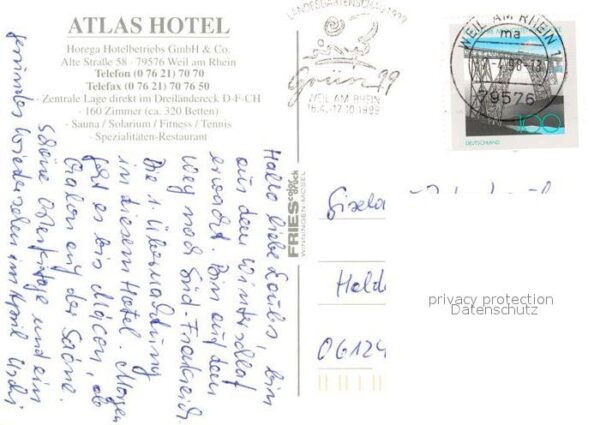 ATLAS HOTEL
Horega Hotelbetriebs GmbH & Co.
Alte Straße 58 - 79576 Weil am Rhein
Telefon (0 76 21) 70 70
Telefax (0 76 21) 70 76 50
Zentrale Lage direkt im Dreiländereck D-F-CH
- 160 Zimmer (ca. 320 Betten)
- Sauna / Solarium / Fitness / Tennis
- Spezialitäten-Restaurant
LANDESGARTENSCHAU 1999
Grün 99
WEIL AM RHEIN
16.4.-17.10.1999
WEIL AM RHEIN 1
ma
79576
100
DEUTSCHLAND
Hallo liebe, bin
aus dem Winterschlaf
erwacht. Bin auf dem
Weg nach Süd-Frankreich
Die 1. Übernachtung
in diesem Hotel. Morgen
geht es bis Mâcon, ob
Chalon auf der Saône.
Schöne Ostertage und ein
gesundes Wiedersehen im April
FRIES
WINNINGEN-MOSEL
Gisela
06124
privacy protection
Datenschutz